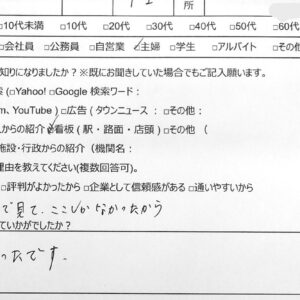 所
□10代未満 □10代 □20代 □30代 □40代 □50代 □60
□会社員 □公務員 □自営業 □主婦 □学生 □アルバイト □その他
知りになりましたか？※既にお聞きしていた場合でもご記入願います。
索 (□Yahoo! □Google 検索ワード：
m、YouTube ) □広告 ( タウンニュース ： □その他：
人からの紹介 □看板 ( 駅・路面・店頭 ) □その他 (
施設・行政からの紹介（機関名：
理由を教えてください(複数回答可)。
□評判がよかったから □企業として信頼感がある □通いやすいから
で見て、ここしかなかったから
ていかがでしたか？
ったです。